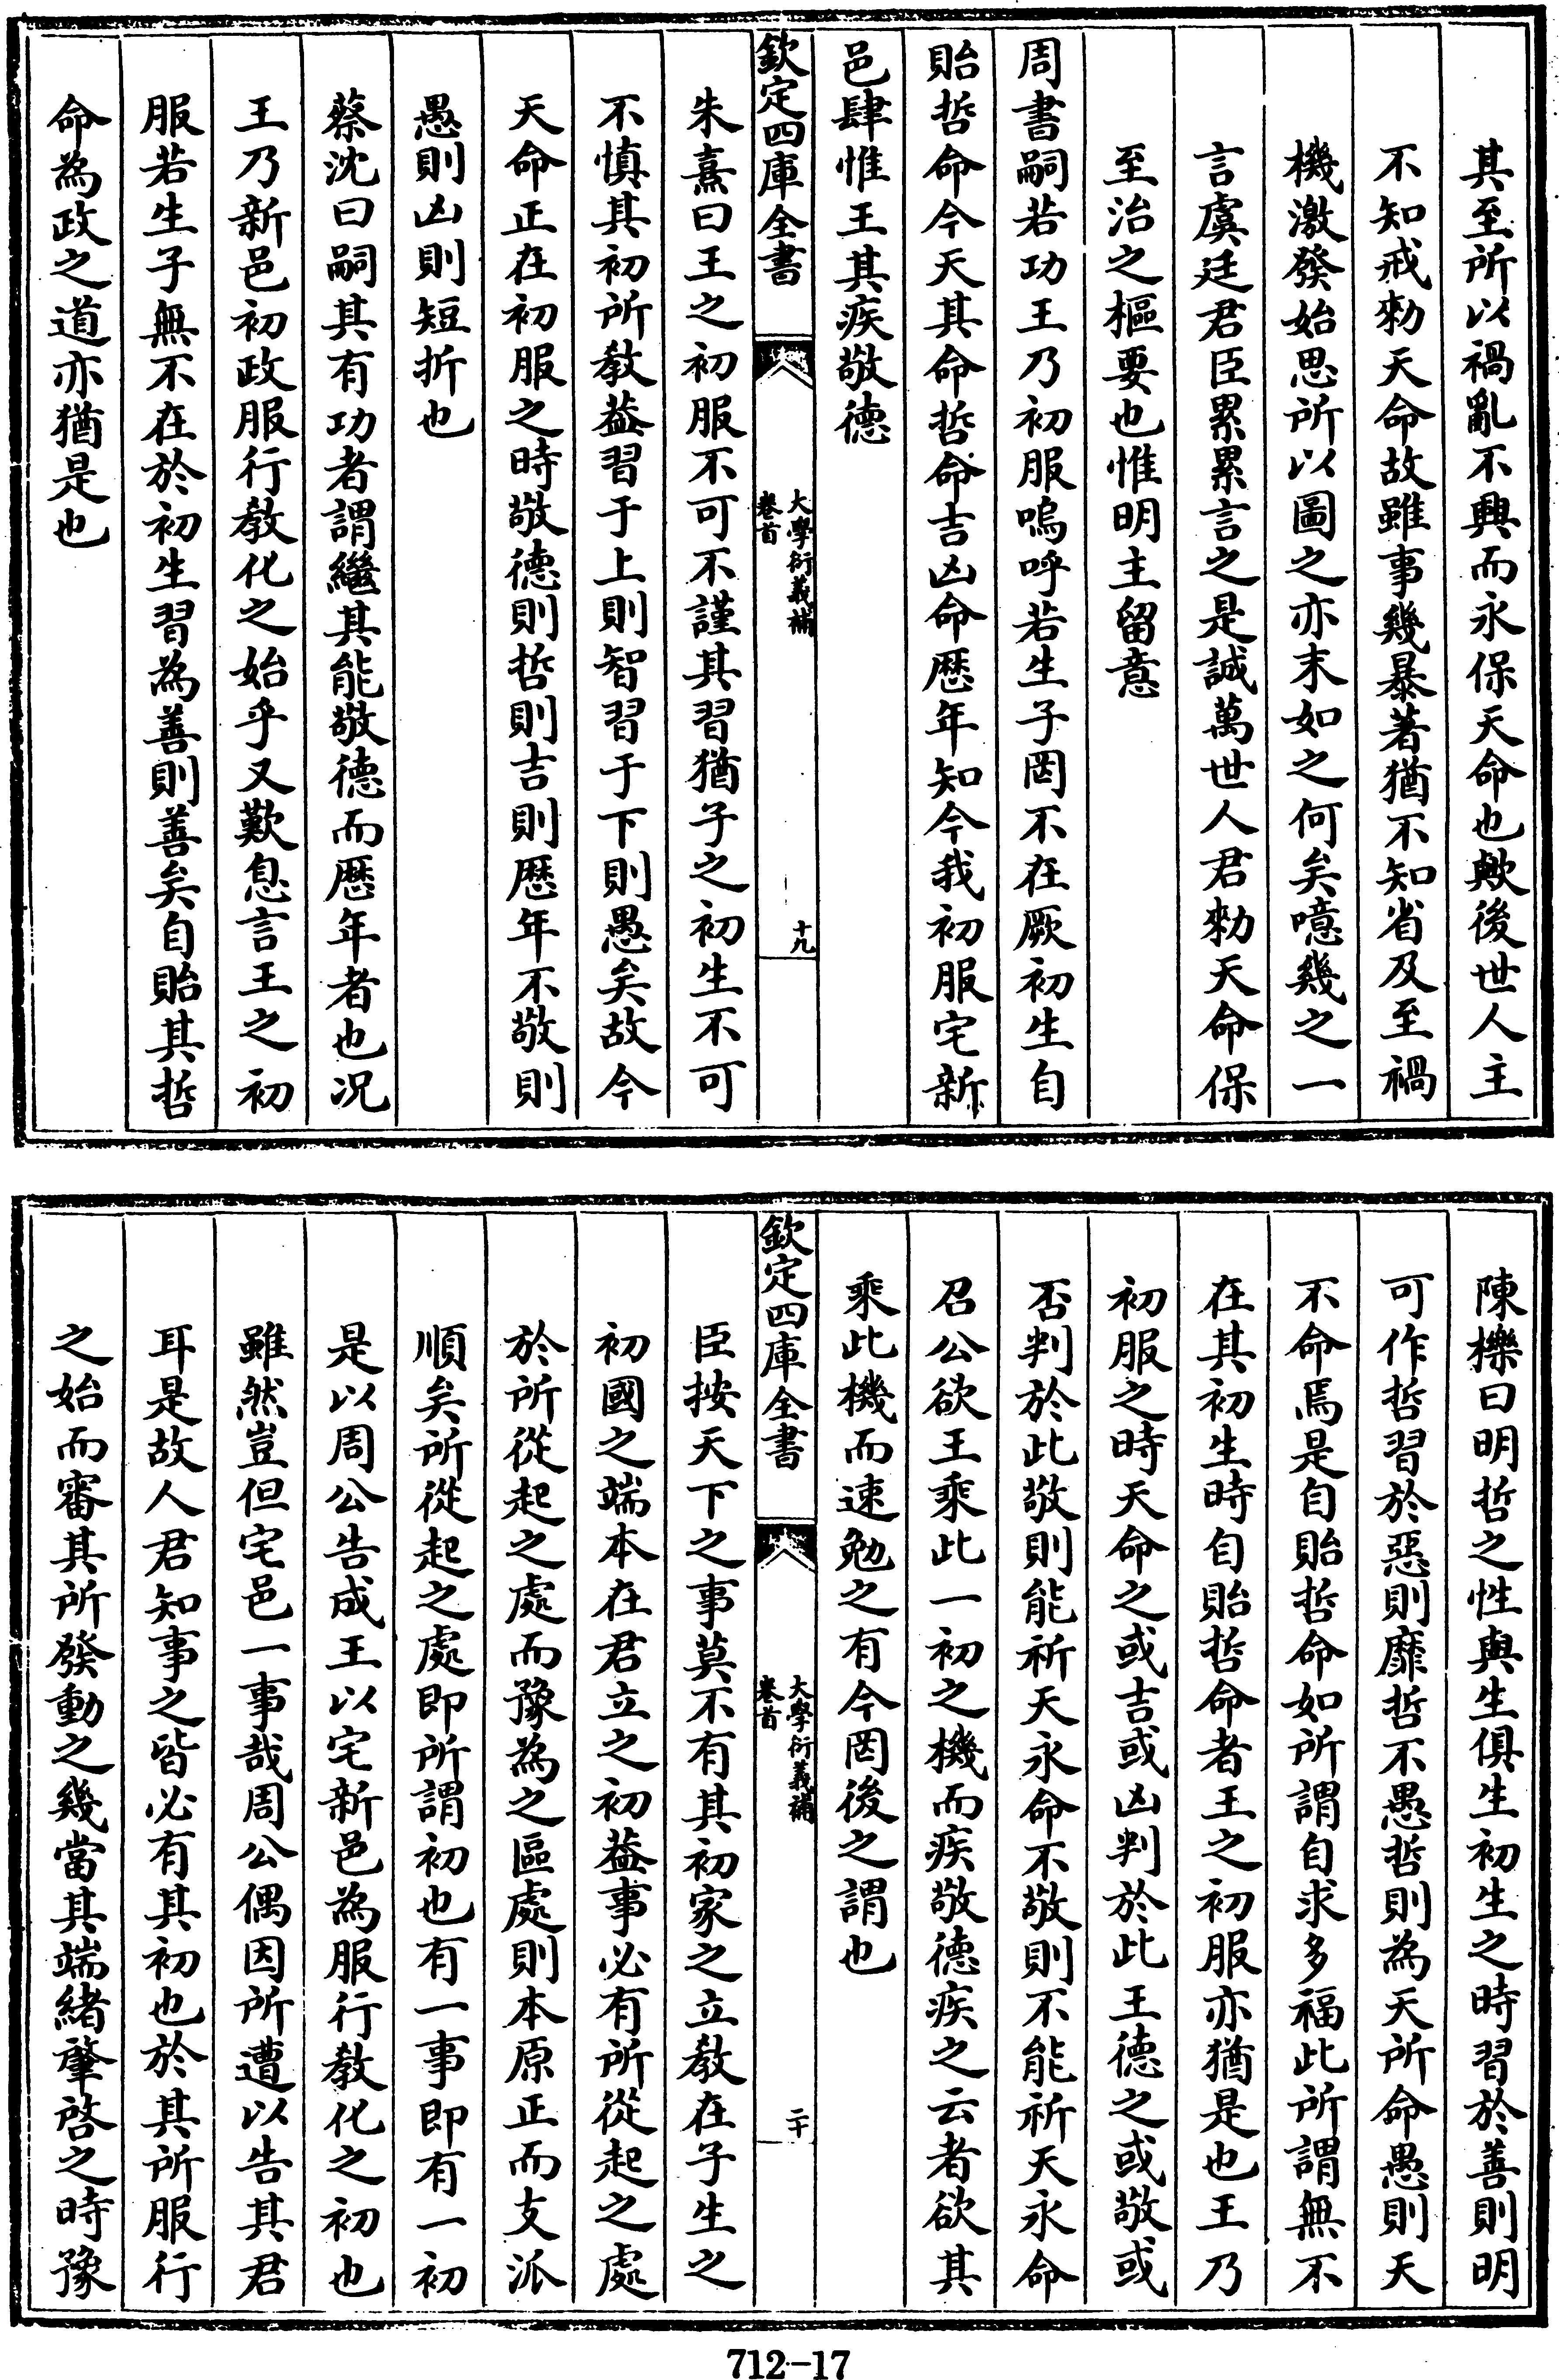 其至所以禍亂不興而永保天命也歟後世人主
不知戒勑天命故雖事幾暴著猶不知省及至禍
機激發始思所以圖之亦末如之何矣噫幾之一
言虞廷君臣累累言之是誠萬世人君勑天命保
至治之樞要也惟明主留意
周書嗣若功王乃初服嗚呼若生子罔不在厥初生自
貽哲命今天其命哲命吉凶命歷年知今我初服宅新
邑肆惟王其疾敬德
欽定四庫全書
大學衍義補
卷首
十九
朱熹曰王之初服不可不謹其習猶子之初生不可
不慎其初所教葢習于上則智習于下則愚矣故今
天命正在初服之時敬德則哲則吉則歷年不敬則
愚則凶則短折也
蔡沈曰嗣其有功者謂繼其能敬德而歷年者也况
王乃新邑初政服行教化之始乎又歎息言王之初
服若生子無不在於初生習為善則善矣自貽其哲
命為政之道亦猶是也
陳櫟曰明哲之性與生俱生初生之時習於善則明
可作哲習於惡則靡哲不愚哲則為天所命愚則天
不命焉是自貽哲命如所謂自求多福此所謂無不
在其初生時自貽哲命者王之初服亦猶是也王乃
初服之時天命之或吉或凶判於此王德之或敬或
否判於此敬則能祈天永命不敬則不能祈天永命
召公欲王乘此一初之機而疾敬德疾之云者欲其
乘此機而速勉之有今罔後之謂也
欽定四庫全書
大學衍義補
卷首
二十
臣按天下之事莫不有其初家之立教在子生之
初國之端本在君立之初葢事必有所從起之處
於所從起之處而豫為之區處則本原正而支派
順矣所從起之處即所謂初也有一事即有一初
是以周公告成王以宅新邑為服行教化之初也
雖然豈但宅邑一事哉周公偶因所遭以告其君
耳是故人君知事之皆必有其初也於其所服行
之始而審其所發動之幾當其端緒肇啓之時豫
712-17